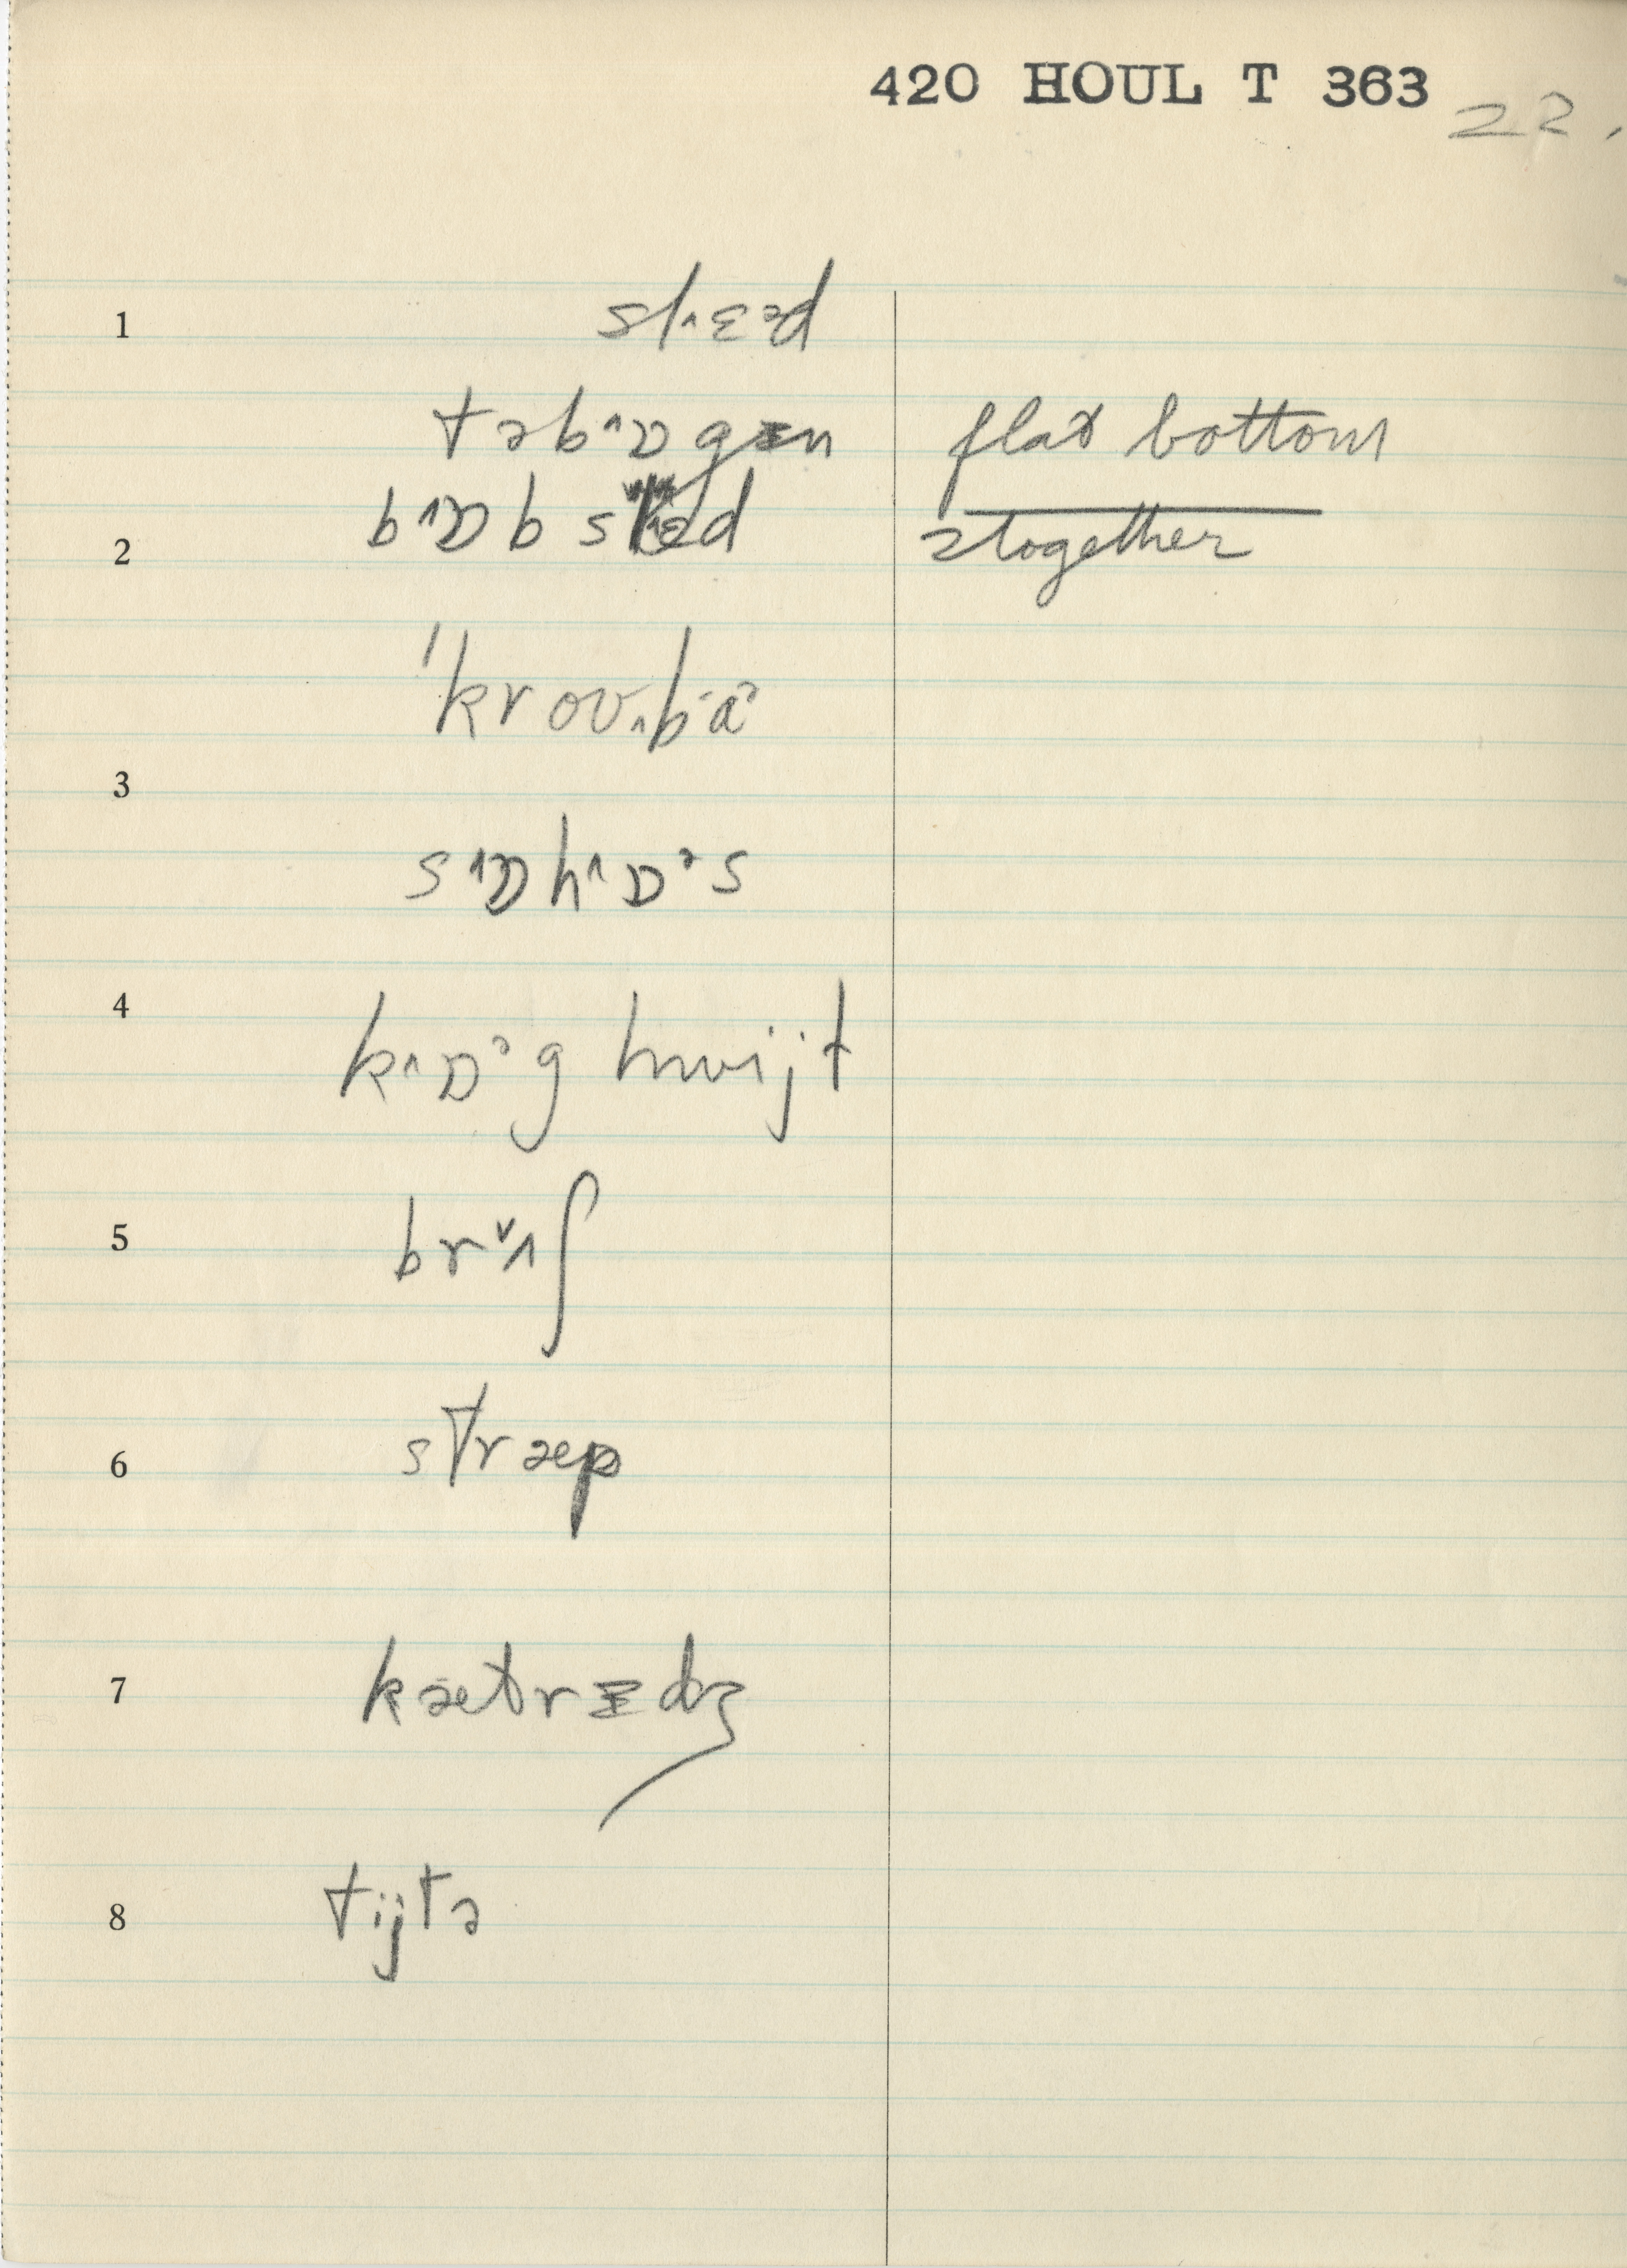 420 HOUL T 363 22.
1 sl˄ɛᵊd
təb˄ɒgᵻn flat bottom
2 b˄ɒb sl˄ɛᵊd 2 together
ˈkrɔʊ˄bɑˑᵊ
3 s˄ɒh˄ɒᵊs
4 k˄ɒᵊg hwijt
5 brʌ˅˄ʃ
6 stræp
7 kætrᵻdʒ
8 tijtə